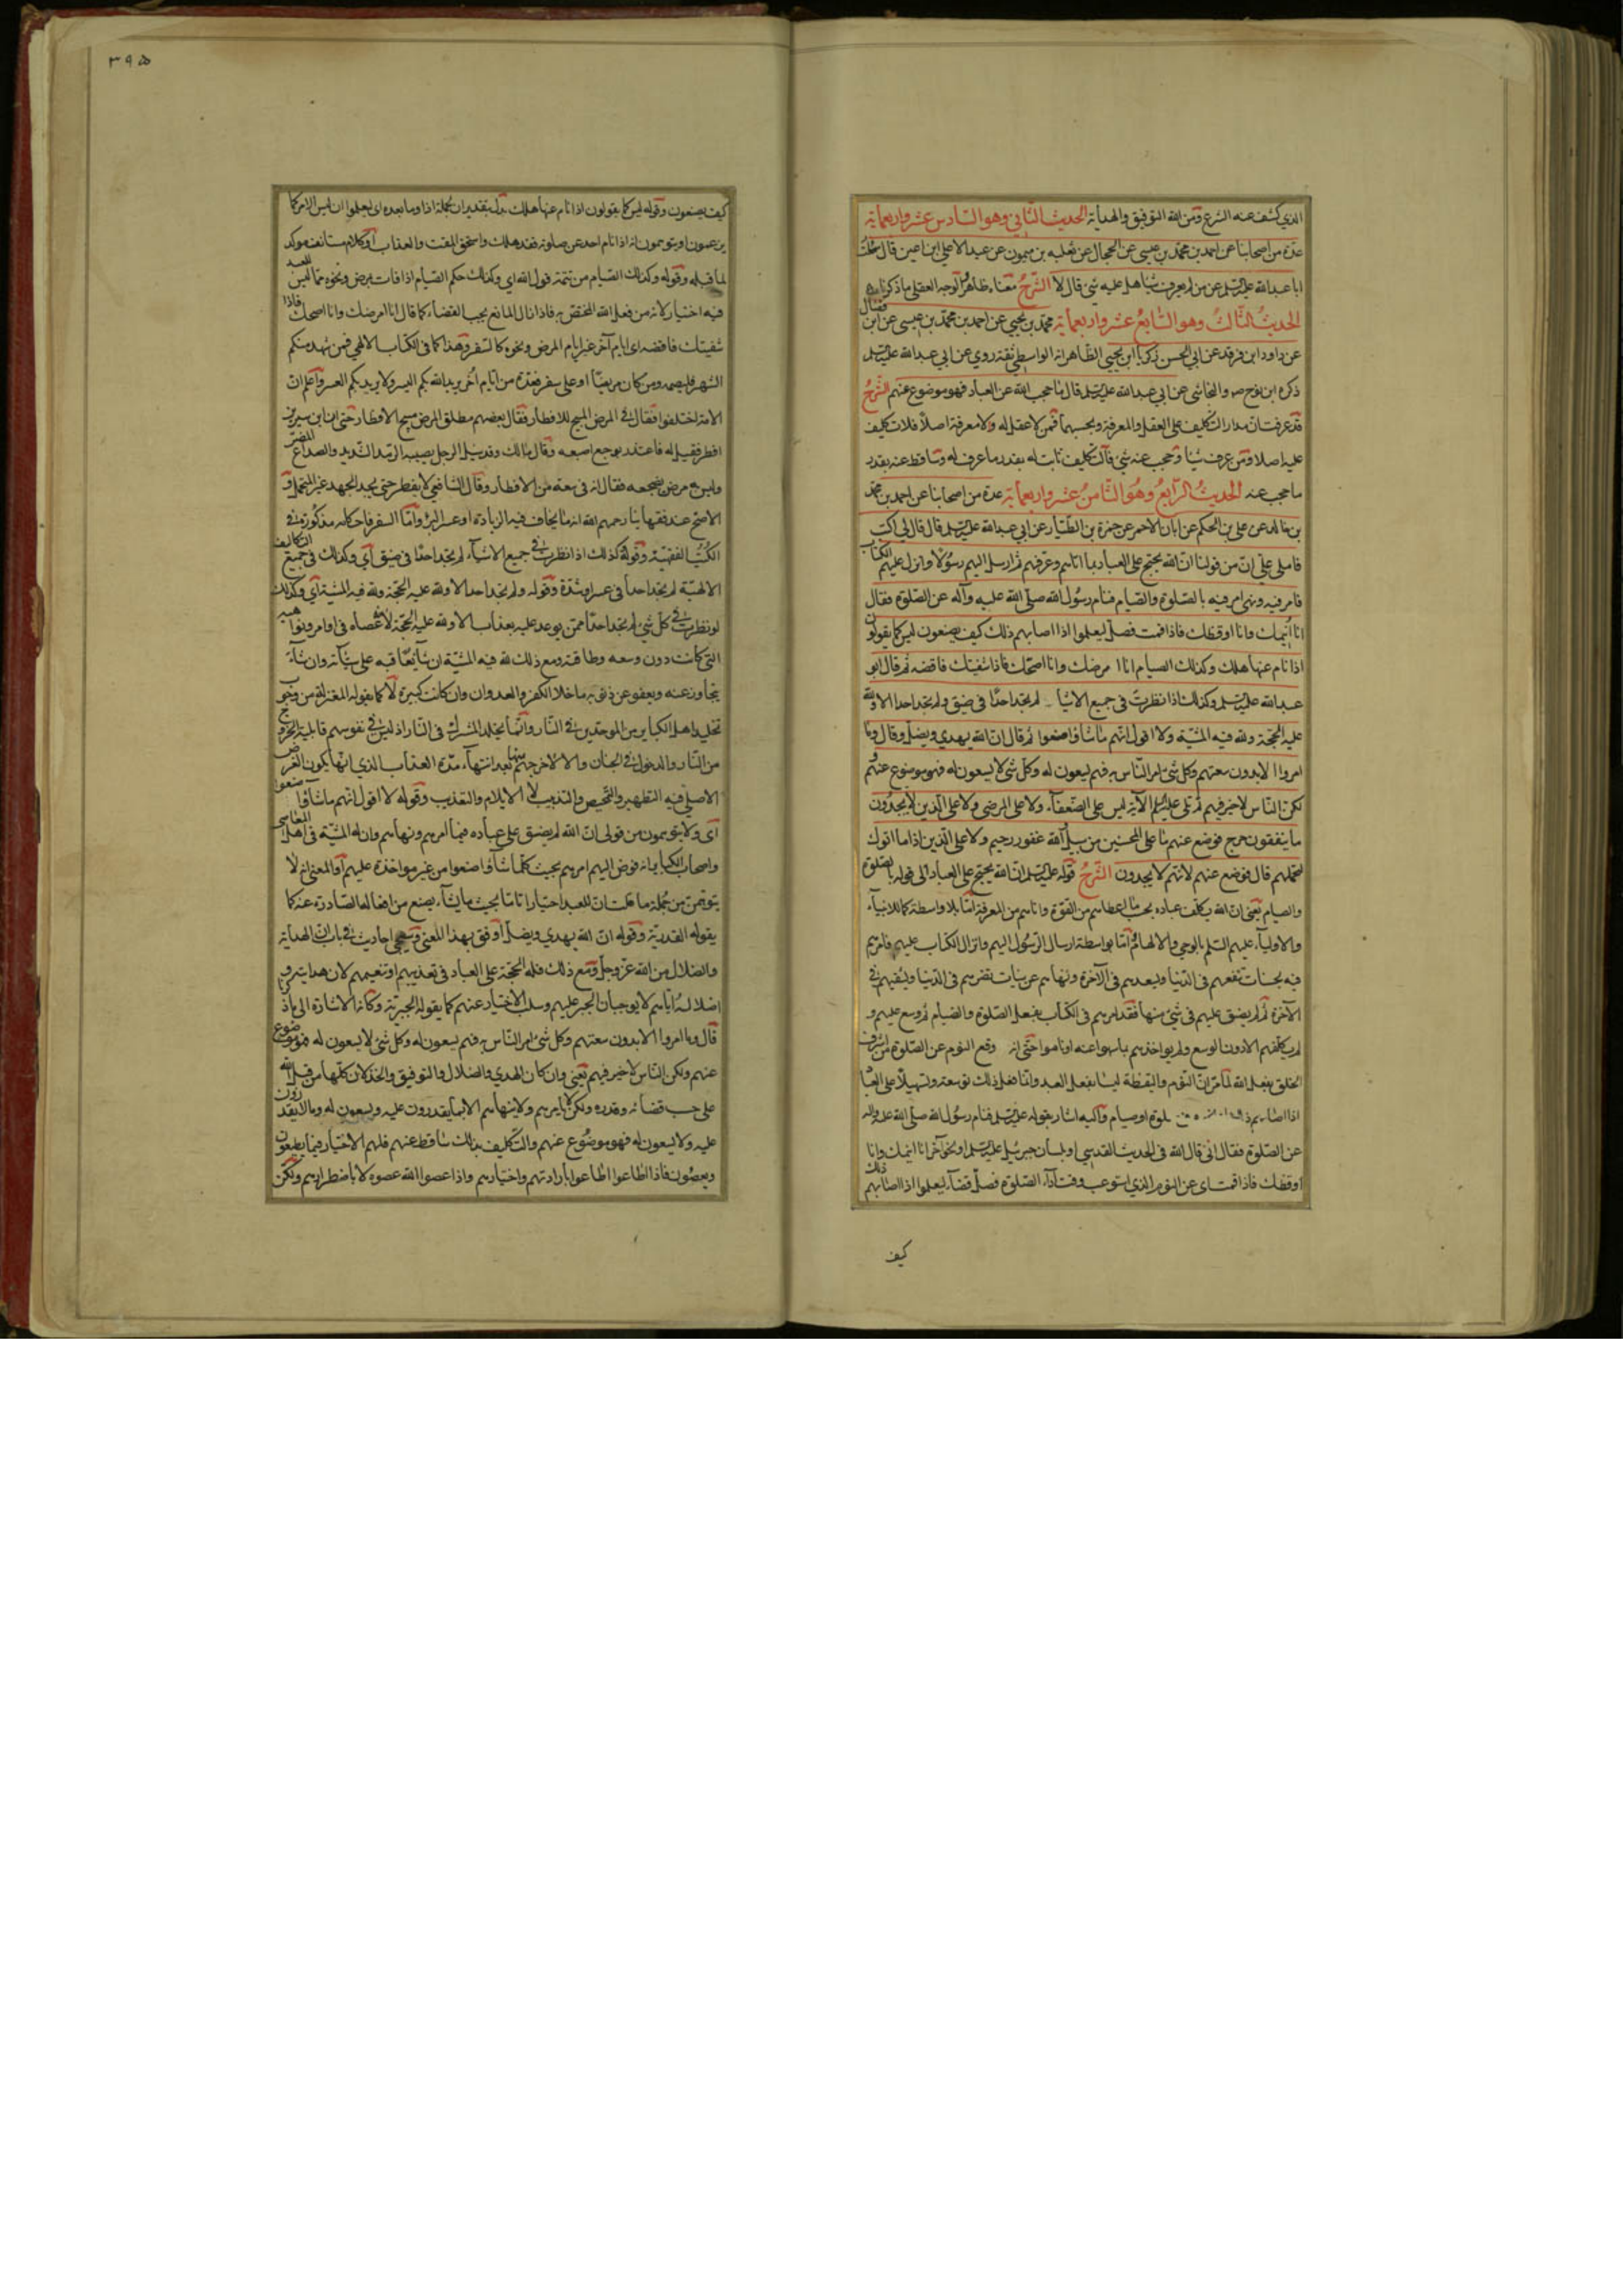 الذي كشف عنه الشرع ومن الله التوفيق والهداية الحديث الثاني وهو السادس عشر واربعمائة
عدة من اصحابنا عن احمد بن محمد بن عيسى عن الحجال عن ثعلبه بن ميمون عن عبد الاعلى ابن اعين قال سئلت
ابا عبد الله عليه السلم عن من لم يعرف شيئا هل عليه شئ قال لا الشرح معناه ظاهر
الحديث الثالث وهو السابع عشر واربعمائة محمد بن يحيى عن احمد بن محمد بن عيسى عن ابن فضال
عن داود ابن فرقد عن ابي الحسن زكريا ابن يحيى الظاهر انه الواسطي ثقة روى عن ابي عبد الله عليه السلم
ذكره ابن نوح والنجاشى عن ابي عبد الله عليه السلم قال ما حجب الله عن العباد فهو موضوع عنهم الشرح
قد عرفت ان مدار التكليف على العقل والمعرفة وبحسبهما فمن لا عقل له ولا معرفة اصلا فلا تكليف
عليه اصلا ومن عرف شيئا وحجب عنه شئ فالتكليف ثابت له بقدر ما عرف له وساقط عنه بقدر
ما حجب عنه الحديث الرابع وهو الثامن عشر واربعمائة عدة من اصحابنا عن احمد بن محمد
بن خالد عن علي بن الحكم عن ابان الاحمر عن حمزة بن الطيار عن ابي عبد الله عليه السلم قال قال لي اكتب
فاملى على ان من قولنا ان الله يحتج على العباد بما اتاهم وعرفهم ثم ارسل اليهم رسولا وانزل عليهم الكتاب
فامر فيه ونهى امر فيه بالصلوة والصيام فنام رسول الله صلى الله عليه وآله عن الصلوة فقال
انا انيمك وانا اوقظك فاذا قمت فصل ليعلموا اذا اصابهم ذلك كيف يصنعون ليس كما يقولون
اذا نام عنها هلك وكذلك الصيام انا امرضك وانا اصحك فاذا شفيتك فاقضه ثم قال ابو
عبد الله عليه السلم وكذلك اذا نظرت في جميع الاشياء لم تجد احدا في ضيق ولم تجد احدا الا ولله
عليه الحجة ولله فيه المشية ولا اقول انهم ما شاؤا صنعوا ثم قال ان الله يهدي ويضل وقال وما
امروا الا بدون سعتهم وكل شئ امر الناس به فهم يسعون له وكل شئ لا يسعون له فهو موضوع عنهم
لكن الناس لا خير فيهم ثم تلى عليه السلم الآية ليس على الضعفاء ولا على المرضى ولا على الذين لا يجدون
ما ينفقون حرج فوضع عنهم ما على المحسنين من سبيل والله غفور رحيم ولا على الذين اذا ما اتوك
لتحملهم قال فوضع عنهم لانهم لا يجدون الشرح قوله عليه السلم ان الله يحتج على العباد الى قوله بالصلوة
والصيام يعنى ان الله يكلف عباده بحسب ما اعطاهم من القوة واتاهم من المعرفة اما بلا واسطة كما للانبياء
والاولياء عليهم السلم بالوحي والالهام او اما بواسطة ارسال الرسول اليهم وانزال الكتاب عليهم فامرهم
فيه بحسنات تنفعهم في الدنيا وبعدهم في الآخرة ونهاهم عن سيئات تضرهم في الدنيا وتشقيهم في
الآخرة ثم لم يضيق عليهم في شئ منها فقد امرهم في الكتاب بفعل الصلوة والصيام ثم وسع عليهم و
لم يكلفهم الا دون الوسع ولم يؤاخذهم بما سهوا عنه او ناموا حتى انه وقع النوم عن الصلوة من اشرف
الخلق بفعل الله لما مر ان النوم واليقظة ليسا بفعل العبد وانما فعل ذلك توسعة وتسهيلا على العباد
اذا اصابهم صلوة او صيام واليه اشار بقوله عليه السلم فنام رسول الله صلى الله عليه واله
عن الصلوة فقال اى قال الله في الحديث القدسي او بلسان جبرئيل عليه السلم او بنحو آخر انا انيمك وانا
اوقظك فاذا قمت اى عن النوم الذي استوعب وقت اداء الصلوة فصل قضاء ليعلموا اذا اصابهم ذلك
كيف
٣٩٥
كيف يصنعون وقوله ليس كما يقولون اذا نام عنها هلك بدل بتقدير ان لجملة اذا وما بعده اى ليعلموا ان ليس الامر كما
يزعمون او يتوهمون انه اذا نام احد عن صلوته فقد هلك واستحق المقت والعذاب او كلام مستأنف موكد
لما قبله وقوله وكذلك الصيام من تتمة قول الله اى وكذلك حكم الصيام اذا فات بمرض ونحوه مما ليس للعبد
فيه اختيار لانه من فعل الله المختص به فاذا زال المانع يجب القضاء كما قال انا امرضك وانا اصحك فاذا
شفيتك فاقضه اى ايام آخر غير ايام المرض ونحوه كالسفر وهذا كما في الكتاب الالهي فمن شهد منكم
الشهر فليصمه ومن كان مريضا او على سفر فعدة من ايام اخر يريد الله بكم اليسر ولا يريد بكم العسر واعلم ان
الامة اختلفوا فقال في المرض المبيح للافطار فقال بعضهم مطلق المرض مبيح الافطار حتى ان ابن سيرين
افطر فقيل له فاعتذر بوجع اصبعه وقال مالك وقد سئل الرجل يصيبه الرمد الشديد والصداع المضر
وليس به مرض يضجعه فقال انه في سعة من الافطار وقال الشافعي لا يفطر حتى يجد الجهد غير المتحمل و
الاصح عند فقهائنا رحمهم الله انه ما يخاف فيه الزيادة او عسر البرؤ واما السفر فاحكامه مذكورة في
الكتب الفقهية وقوله كذلك اذا نظرت في جميع الاشياء لم تجد احدا في ضيق اى وكذلك في جميع التكاليف
الالهية لم تجد احدا في عسر او شدة وقوله ولم تجد احدا الا ولله عليه الحجة ولله فيه المشية اى وكذلك
لو نظرت في كل شئ لم تجد احدا ممن يوعد عليه بعذاب الا ولله عليه الحجة لانه عصاه في اوامر ونواهيه
التى كانت دون وسعه وطاقته ومع ذلك لله فيه المشية ان شاء يعاقبه على سيئاته وان شاء
يتجاوز عنه ويعفو عن ذنوبه ما خلا الكفر والعدوان وان كانت كبيرة لا كما يقوله المعتزلة من وجوب
تخليد اهل الكبائر من الموحدين في النار وانما يخلد المشرك في النار اذ ليس في نفوسهم قابلية الخروج
من النار والدخول في الجنان والا لاخرجهم منها بعد انتهاء مدة العذاب الذي انما يكون الغرض
الاصلي فيه التطهير والتمحيص والتهذيب لا الايلام والتعذيب وقوله لا اقول انهم ما شاؤا صنعوا
اى ولا يتوهمون من قولى ان الله لم يضيق على عباده فيما امرهم ونهاهم وان له المشية في اهل المعاصى
واصحاب الكبائر انه فوض اليهم امرهم بحيث كلما شاؤا صنعوا من غير مؤاخذة عليهم او المعنى انه لا
يتوهمن من جملة ما قلت ان للعبد اختيارا تاما بحيث ما يشاء يصنع من افعاله الصادرة عنه كما
يقوله القدرية وقوله ان الله يهدي ويضل اوفق بهذا المعنى وسيجئ احاديث في باب ان الهداية
والضلال من الله عز وجل ومع ذلك فله الحجة على العباد في تعذيبهم او تنعيمهم لان هدايته و
اضلاله اياهم لا يوجبان الجبر عليهم وسلب الاختيار عنهم كما يقوله الجبرية وكانه الاشارة الى ما ذكرنا
قال وما امروا الا بدون سعتهم وكل شئ امر الناس به فهم يسعون له وكل شئ لا يسعون له فهو موضوع
عنهم ولكن الناس لا خير فيهم يعني وان كان الهدي والضلال والتوفيق والخذلان كلها من قبل الله
على حسب قضائه وقدره ولكن لا يامرهم ولا ينهاهم الا بما يقدرون عليه ويسعون له وما لا يقدرون
عليه ولا يسعون له فهو موضوع عنهم والتكليف بذلك ساقط عنهم فلهم الاختيار فيما يطيعون
ويعصون فاذا اطاعوا اطاعوا بارادتهم واختيارهم واذا عصوا الله عصوه لا باضطرارهم ولكن